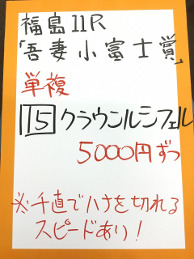 福島11R
「吾妻小富士賞」
単複
15 クラウンルシフェル
5000円ずつ
※千直でハナを切れる
スピードあり!